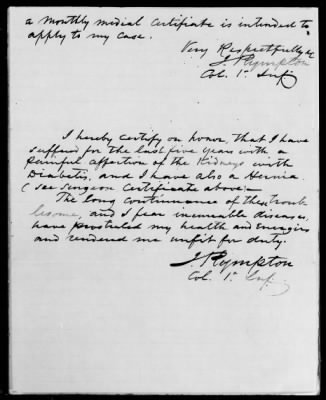 a monthly medical certificate is intended to
apply to my case.
Very Respectfully &c
J Plympton
Col. 1st Infy
I hereby certify on honor, that I have
suffered for the last five years with a
painful affection of the Kidneys with
Diabetis, and I have also a Hernia.
(See Surgeon Certificate above)
The long continuance of these trouble
lesome, and I fear incurable diseases,
have prostrated my health and energies
and rendered me unfit for duty.
J Plympton
Col. 1st Inf.